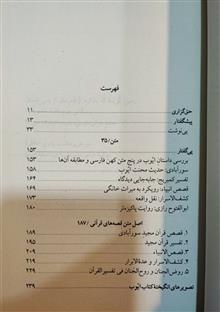 فهرست
حق‌گزاری ۱۱
پیشگفتار ۱۳
پی‌نوشت ۳۳
متن / ۳۵
پی‌گفتار ۱۵۳
بررسی داستان ایّوب در پنج متن کهن فارسی و مطابقه آن‌ها ۱۵۳
سورآبادی: حدیث محنت ایّوب ۱۵۸
تفسیر کمبریج: جابه‌جایی دیدگاه ۱۶۵
قصص انبیاء: رویکرد به میراث خانگی ۱۶۹
کشف‌الاسرار: نقل واقعه ۱۷۳
ابوالفتوح رازی: روایت پاکیزه‌تر ۱۸۰
اصل متن قصه‌های قرآنی / ۱۸۷
۱. قصص قرآن مجید سورآبادی ۱۸۹
۲. تفسیر قرآن مجید ۱۹۵
۳. قصص الانبیاء ۲۰۹
۴. کشف‌الاسرار و عدة‌الابرار ۲۱۸
۵. روض‌الجنان و روح‌الجنان فی تفسیرالقرآن ۲۲۹
تصویرهای انگیختهٔ کتاب ایّوب ۲۳۹